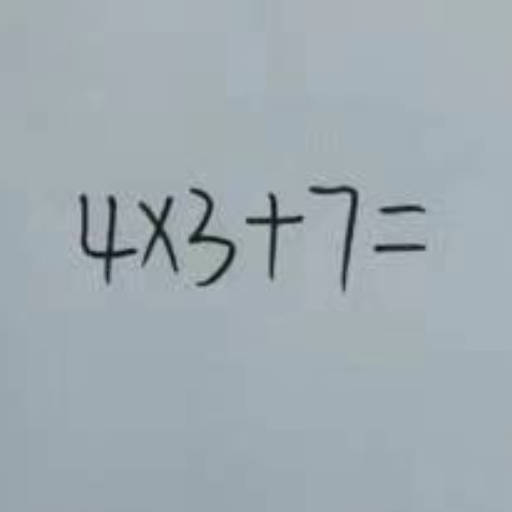 4×3+7=